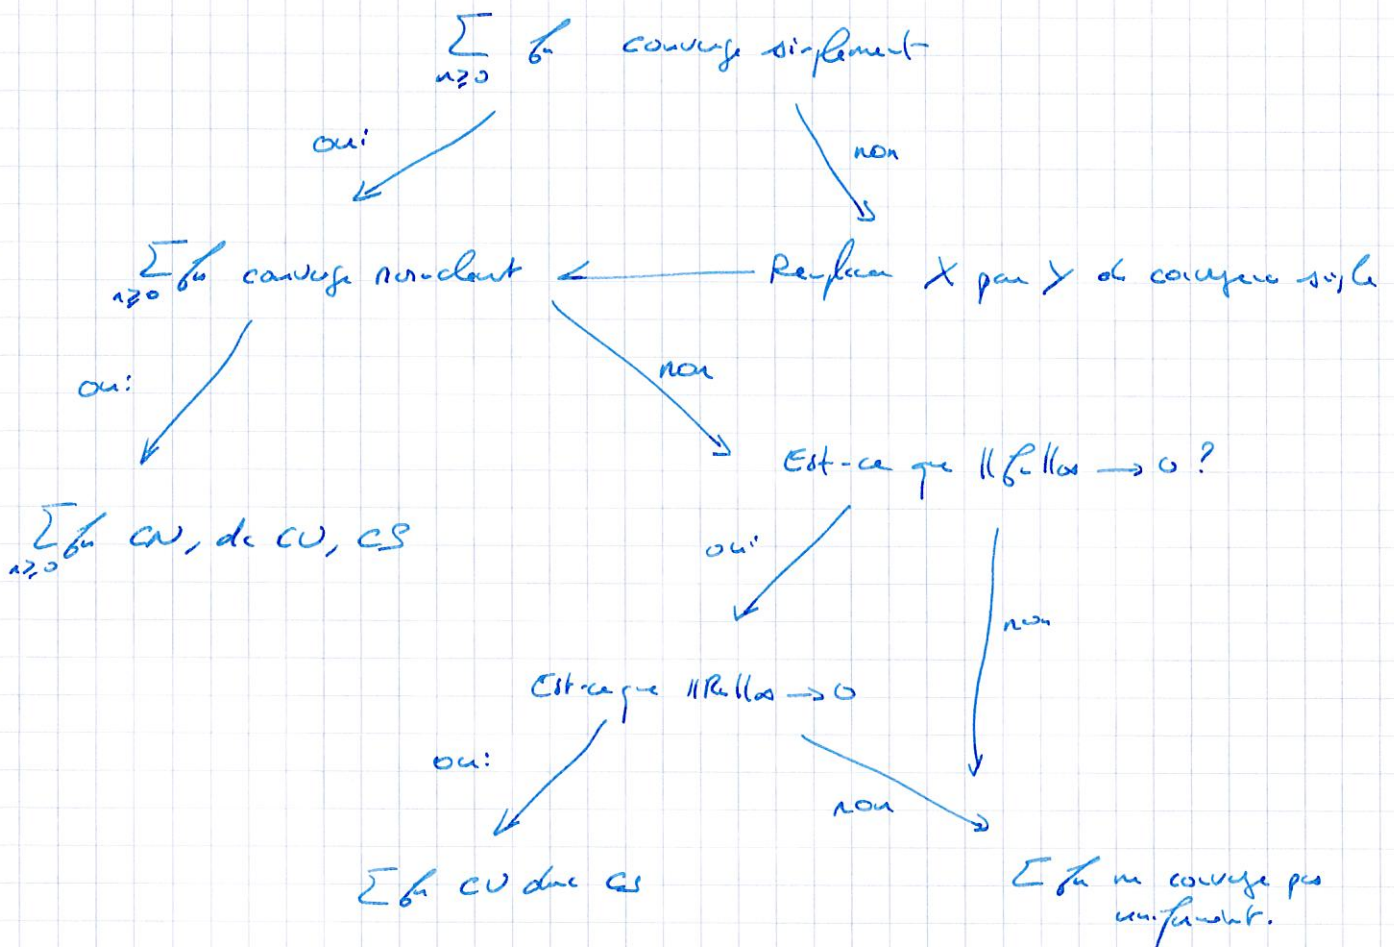 ∑ fn converge simplement
n≥0
oui
non
∑ fn converge normalement
n≥0
Remplacer X par Y de convergence simple
oui
non
Est-ce que ||fn||∞ → 0 ?
∑ fn CN, dc CU, CS
n≥0
oui
non
Est-ce que ||Rn||∞ → 0
oui
non
∑ fn CU donc CS
∑ fn ne converge pas
uniformément.